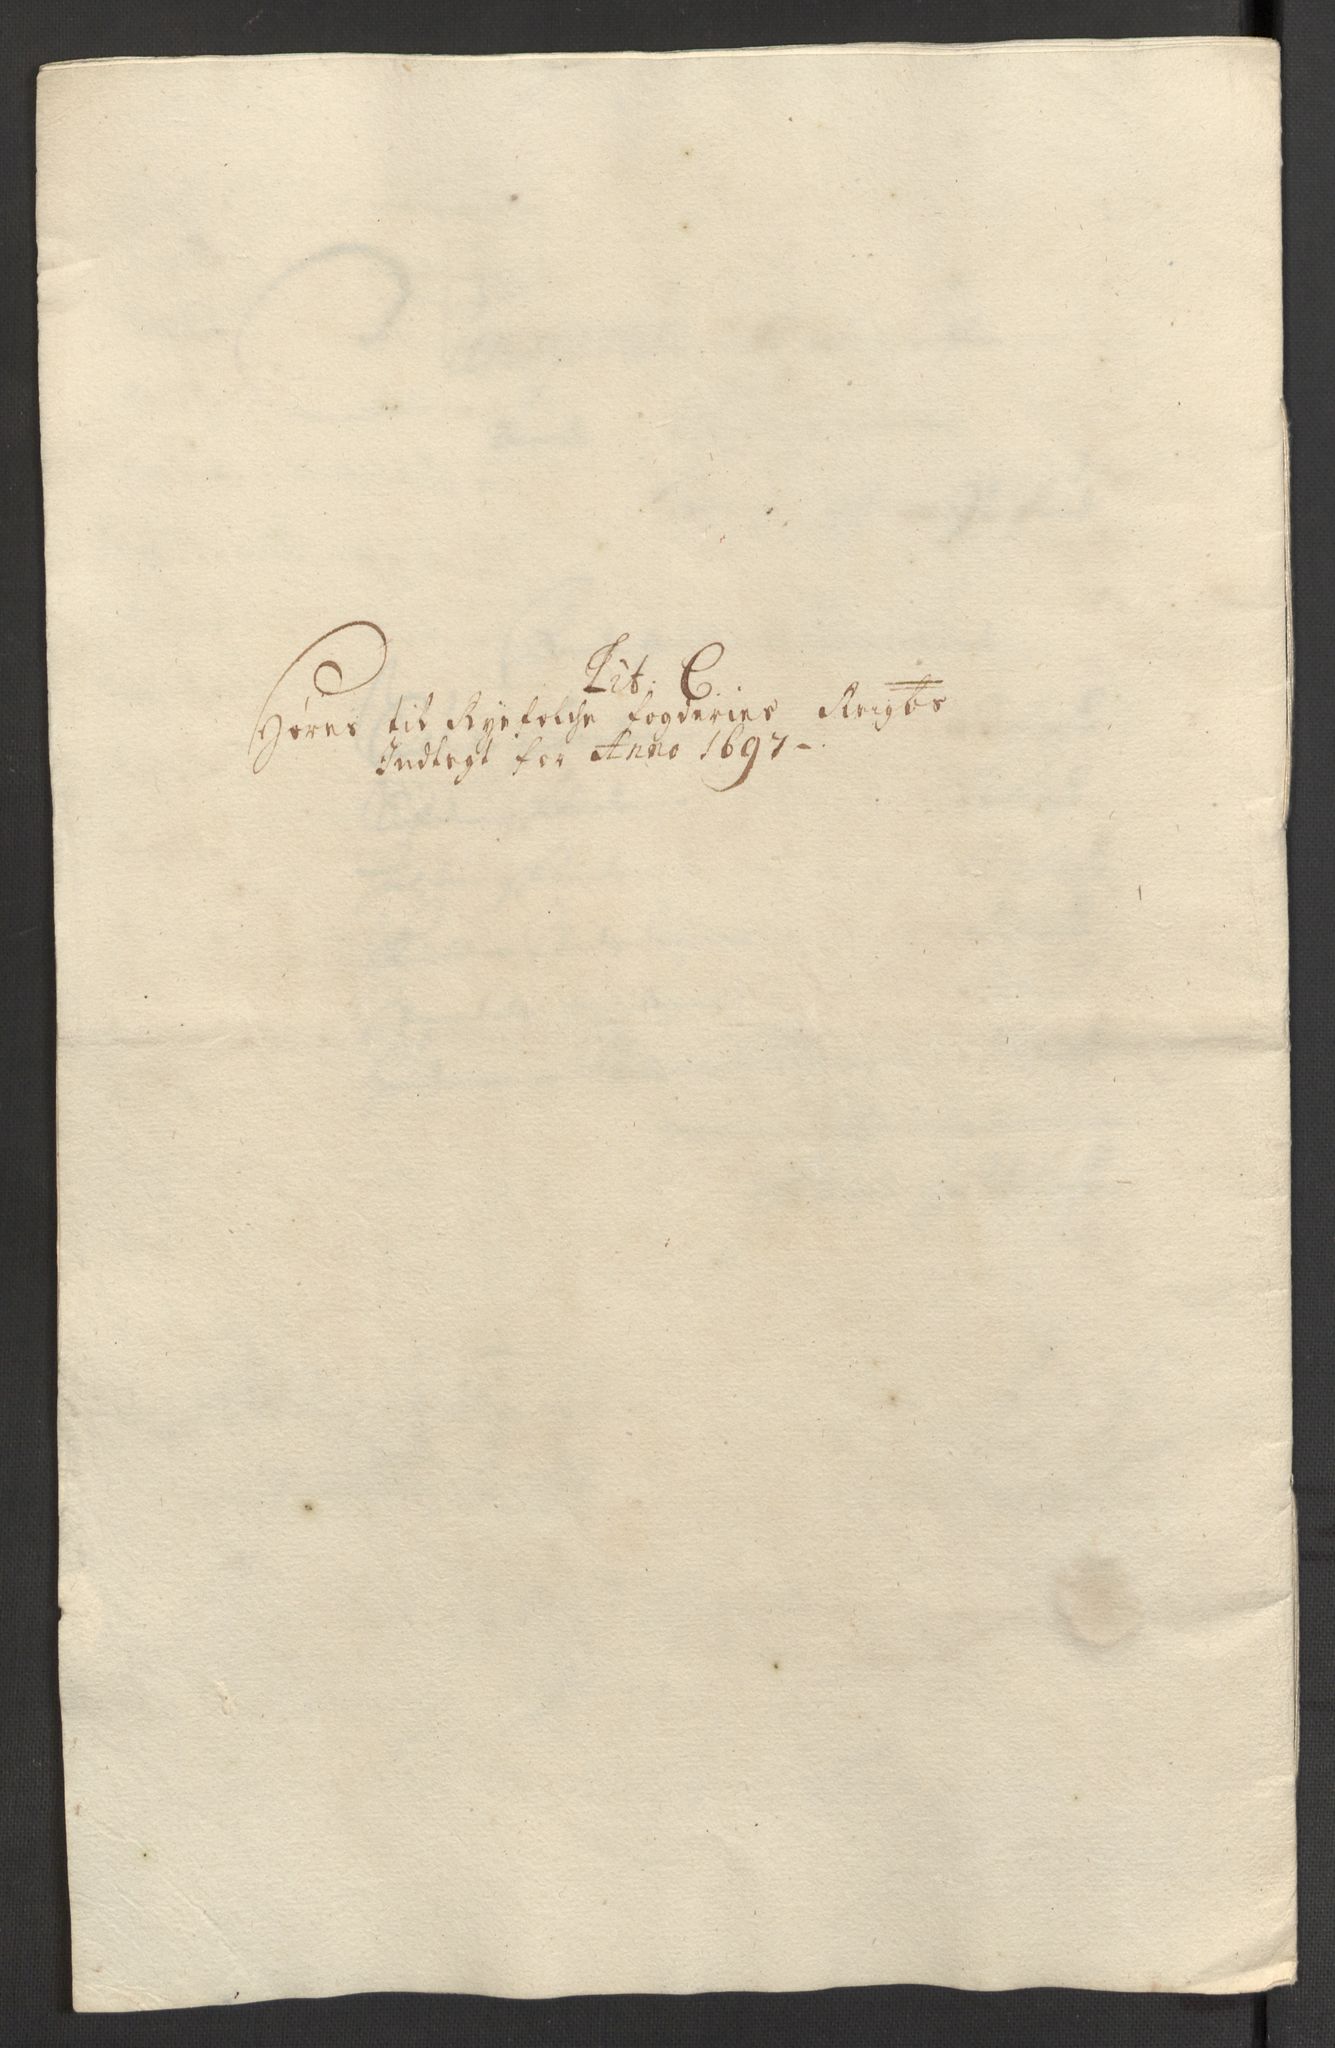 Lit: C.
Hører til Ryefylche fogderies Reigbs
Indtegt for Anno 1697